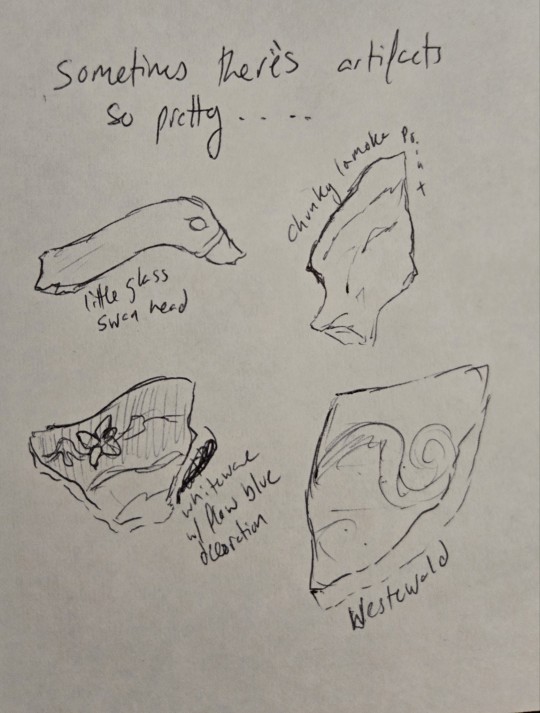 Sometimes there's artifacts
so pretty.....
chunky lamoka Point
little glass
swan head
whiteware
w/ flow blue
decoration
Westerwald